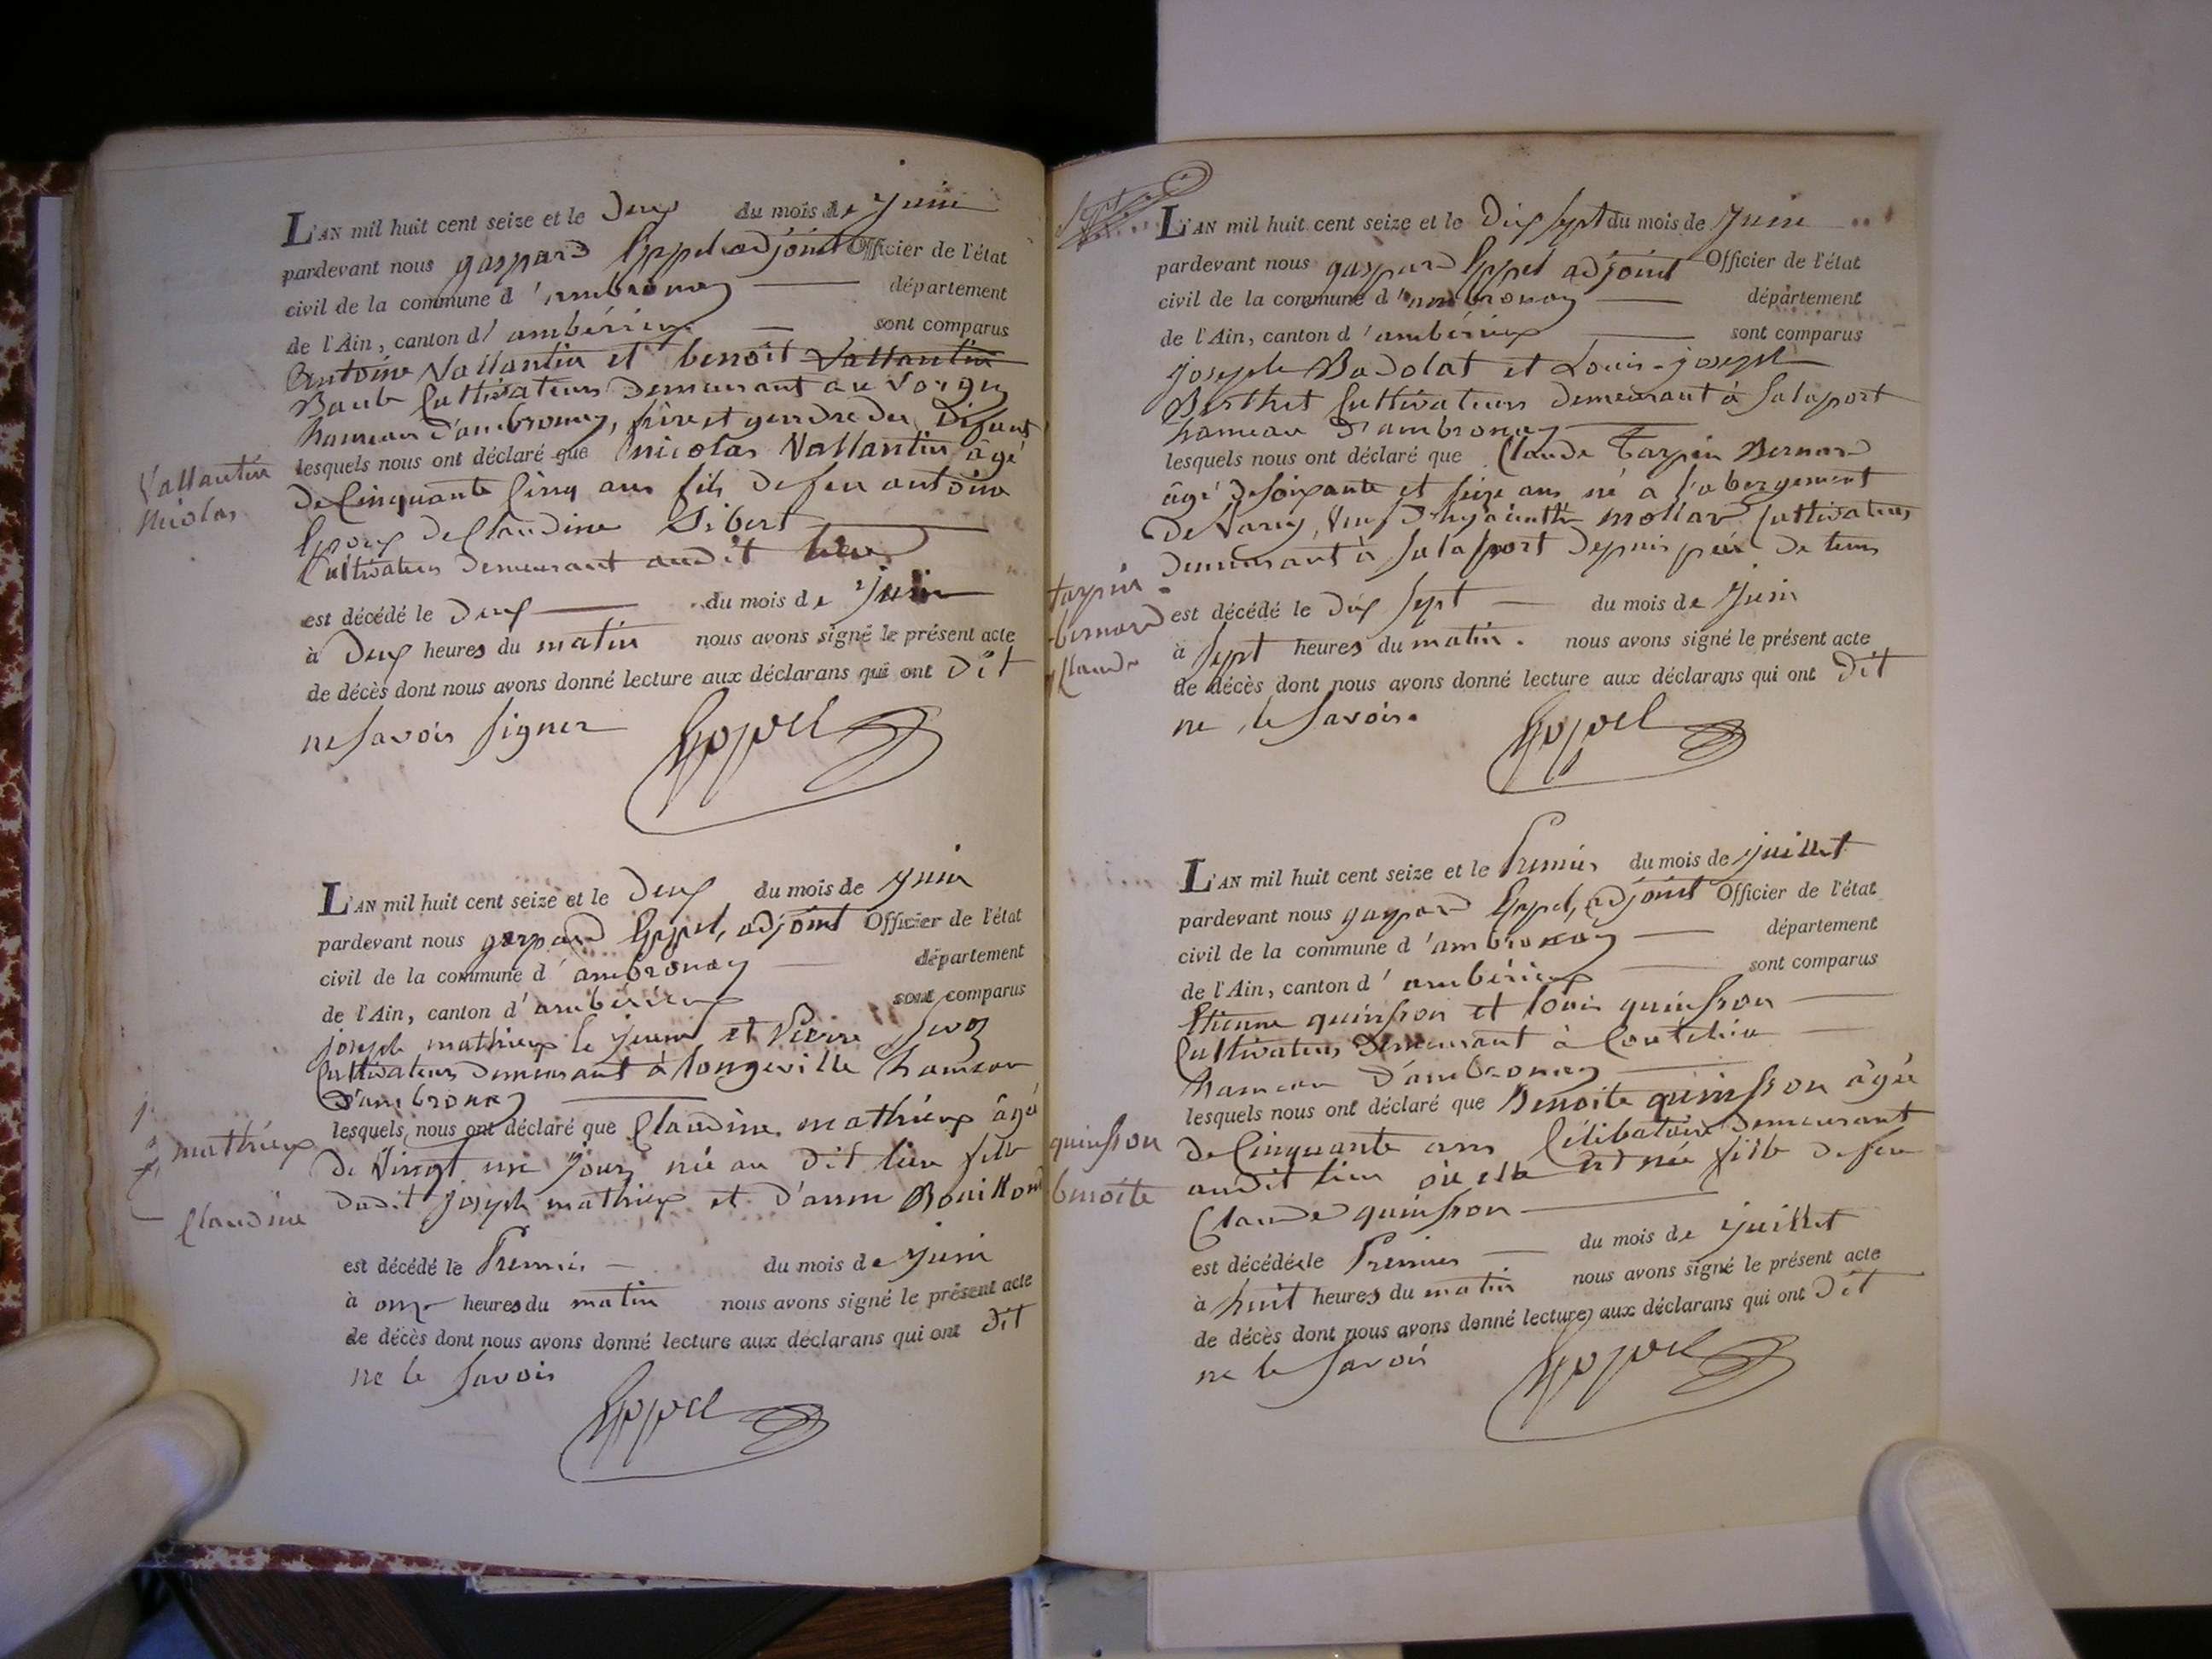 L'AN mil huit cent seize et le Deux du mois de Juin
pardevant nous gaspard Eppel adjoint Officier de l'état
civil de la commune d'ambronay département
de l'Ain, canton d'ambérieux sont comparus
Antoine Vallantin et benoit Vallantin
Baub Cultivateurs Demeurant au Vorgey
hameau d'ambronay, frère et gendre du Difunt
lesquels nous ont déclaré que nicolas Vallantin âgé
De Cinquante Cinq ans fils de feu antoine
Epoux de Claudine Sibert
Cultivateur Demeurant audit lieu
Vallantin
Nicolas
est décédé le Deux du mois de Juin
à Deux heures du matin nous avons signé le présent acte
de décès dont nous avons donné lecture aux déclarans qui ont Dit
ne Savoir Signer Eppel
L'AN mil huit cent seize et le Deux du mois de Juin
pardevant nous gaspard Eppel, adjoint Officier de l'état
civil de la commune d'ambronay département
de l'Ain, canton d'ambérieux sont comparus
joseph mathieux le jeune et Pierre Juoz
Cultivateurs Demeurant à longeville hameau
D'ambronay
lesquels nous ont déclaré que Claudine mathieux âgé
De Vingt un Jours née au Dit lieu fille
Dudit joseph mathieux et D'anne Bouillon
mathieux
Claudine
est décédé le Premier du mois de Juin
à onze heures du matin nous avons signé le présent acte
de décès dont nous avons donné lecture aux déclarans qui ont Dit
ne le Savoir
Eppel
L'AN mil huit cent seize et le Dix Sept du mois de Juin
pardevant nous gaspard Eppel adjoint Officier de l'état
civil de la commune d'ambronay département
de l'Ain, canton d'ambérieux sont comparus
joseph Badolat et Louis-joseph
Berthet Cultivateurs Demeurant à Salaport
hameau D'ambronay
lesquels nous ont déclaré que Claude Tarpin Bernard
âgé de Soixante et Seize ans né a l'abergement
De Varey, Veuf D'hyacinthe mollard Cultivateur
Demeurant à Salaport Depuis peu De tems
tarpin
bernard
Claude
est décédé le Dix Sept du mois de Juin
à Sept heures du matin. nous avons signé le présent acte
de décès dont nous avons donné lecture aux déclarans qui ont Dit
ne le Savoir. Eppel
L'AN mil huit cent seize et le Premier du mois de juillet
pardevant nous gaspard Eppel, adjoint Officier de l'état
civil de la commune d'ambronay département
de l'Ain, canton d'ambérieux sont comparus
Etienne quinsson et louis quinsson
Cultivateurs Demeurant à Coutelieu
hameau D'ambronay
lesquels nous ont déclaré que Benoite quinsson âgée
de Cinquante ans Célibataire Demeurant
audit lieu où elle est née fille De feu
Claude quinsson
quinsson
benoite
est décédée le Premier du mois de juillet
à huit heures du matin nous avons signé le présent acte
de décès dont nous avons donné lecture aux déclarans qui ont Dit
ne le Savoir Eppel